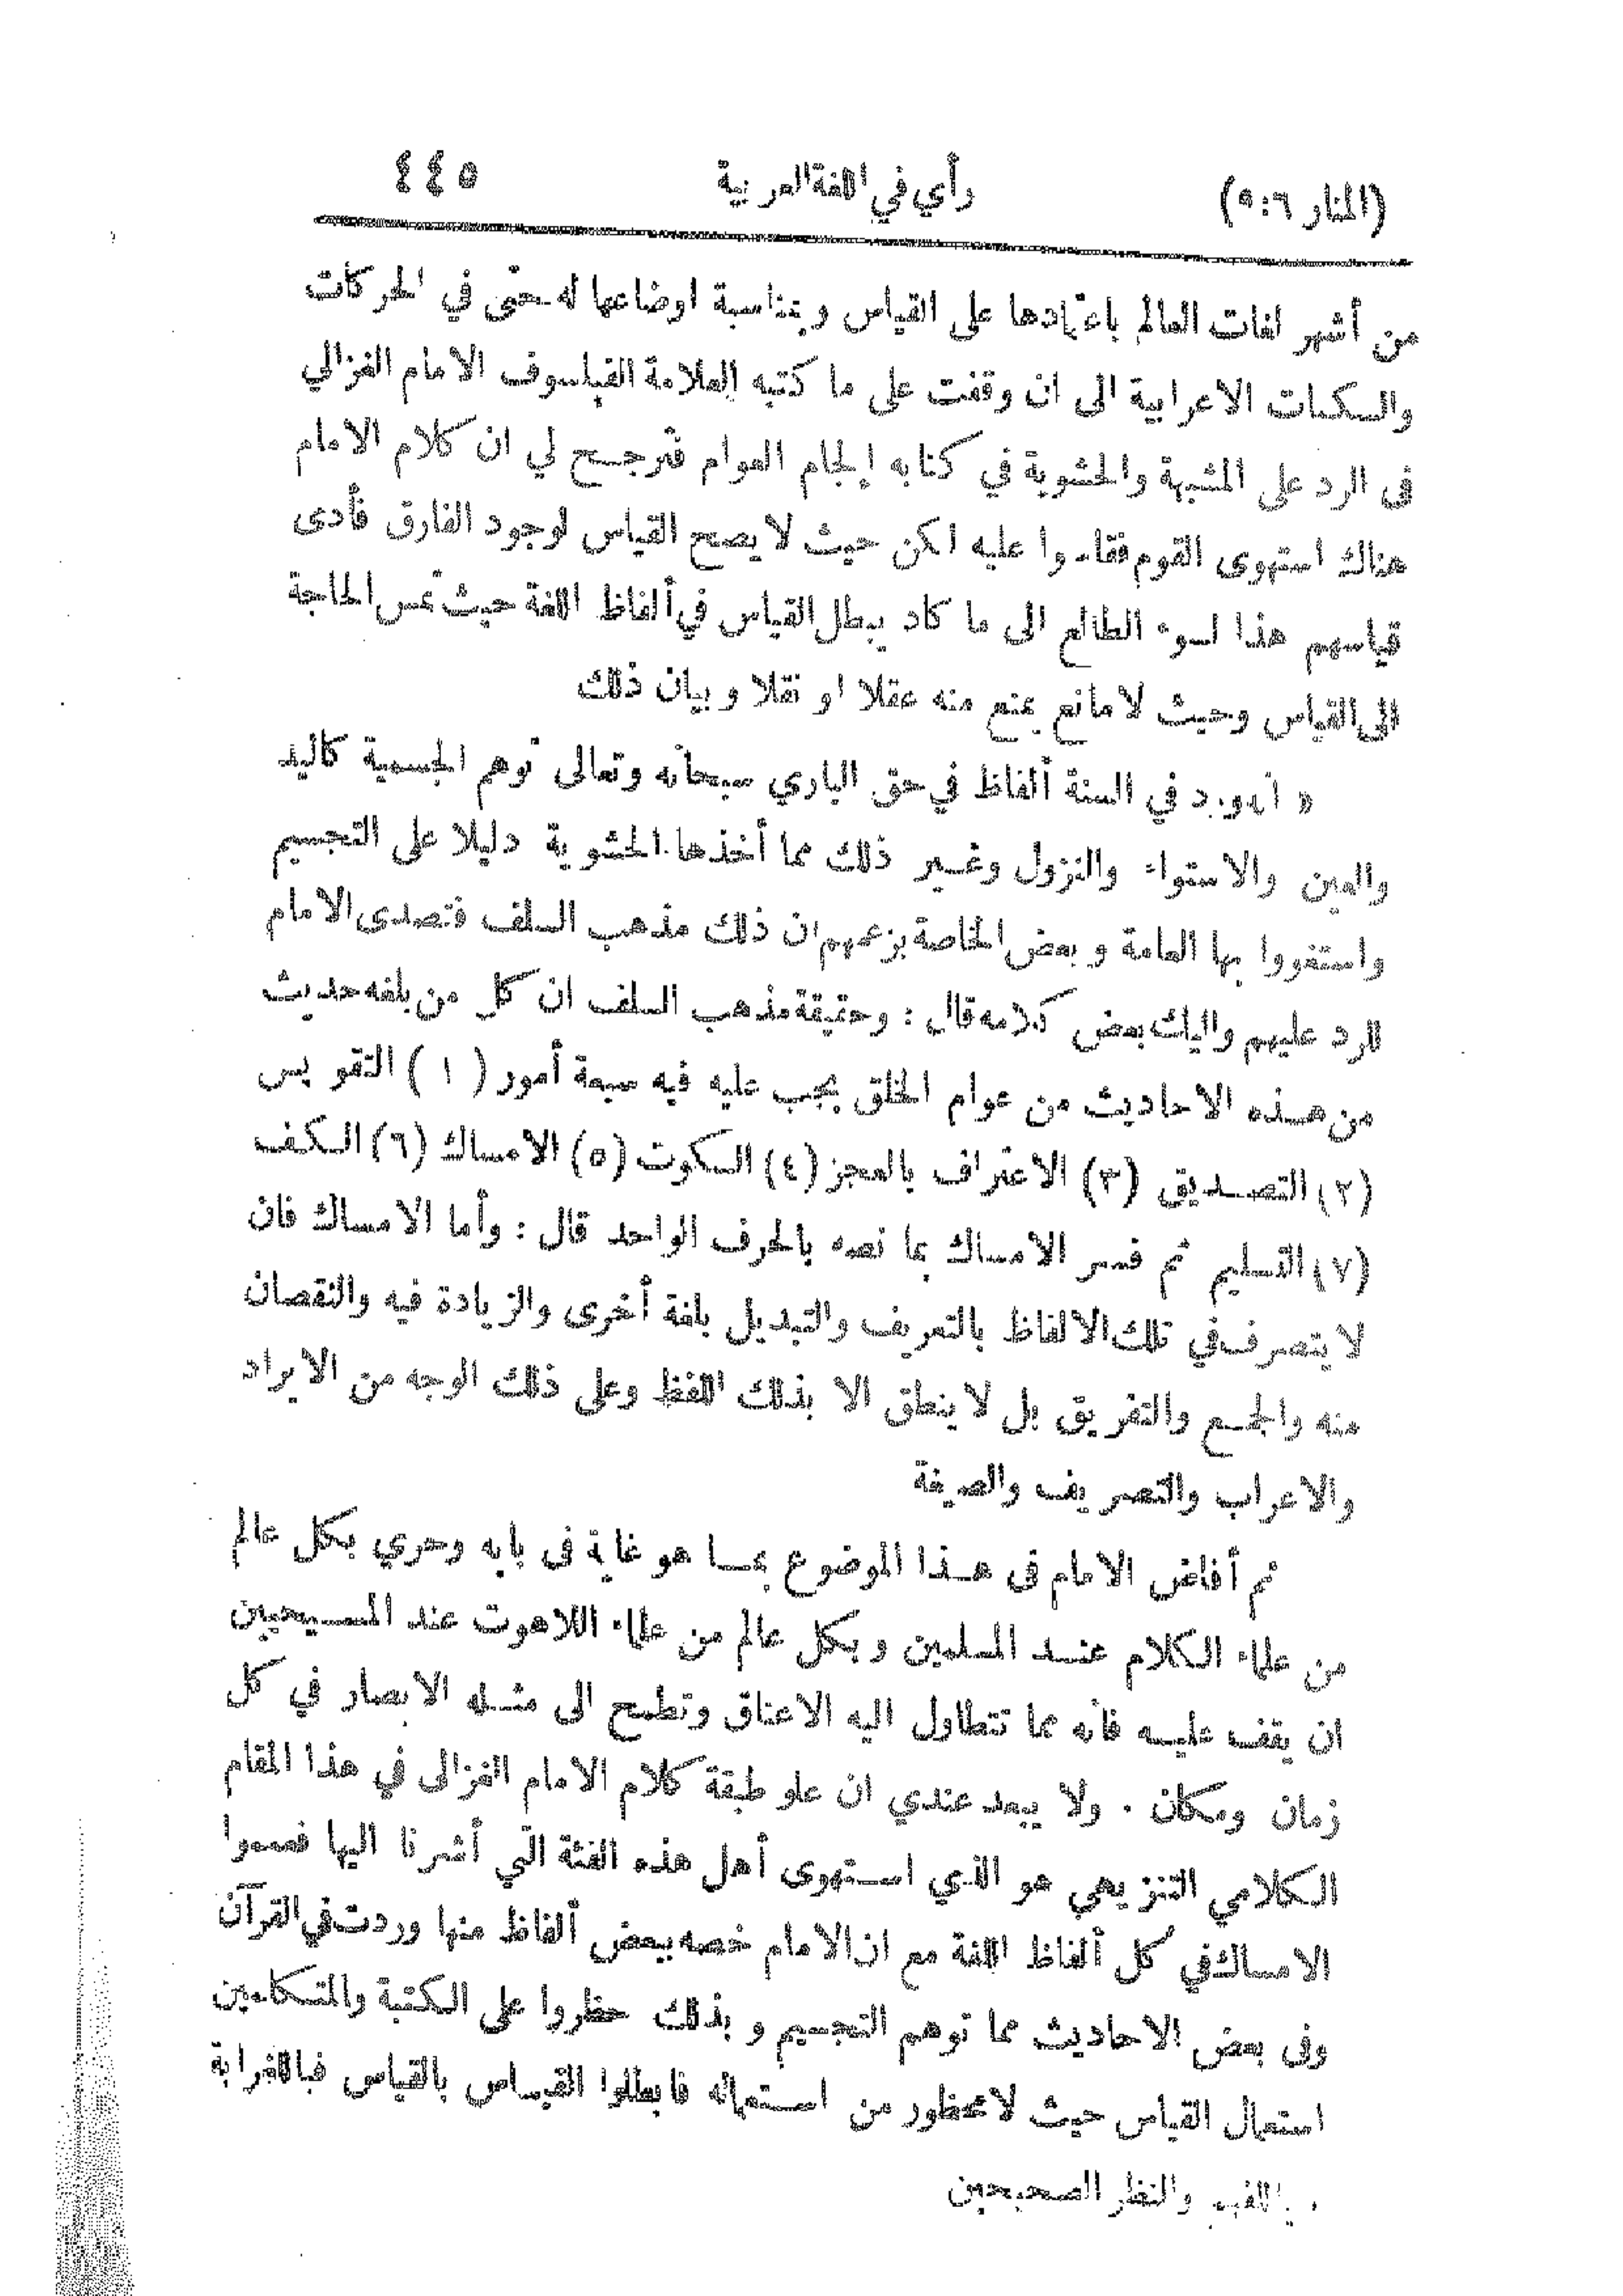 (المنار ٩:٦) رأي في اللغة العربية ٤٤٥
من أشهر لغات العالم باعتمادها على القياس وبمناسبة اوضاعها له حتى في الحركات
والسكنات الاعرابية الى ان وقفت على ما كتبه العلامة الفيلسوف الامام الغزالي
فى الرد على المشبهة والحشوية في كتابه إلجام العوام فترجح لي ان كلام الامام
هناك استهوى القوم فقاسوا عليه لكن حيث لا يصح القياس لوجود الفارق فأدى
قياسهم هذا لسوء الطالع الى ما كاد يبطل القياس في ألفاظ اللغة حيث تمس الحاجة
الى القياس وحيث لا مانع يمنع منه عقلا او نقلا وبيان ذلك
« انه ورد في السنة ألفاظ في حق الباري سبحانه وتعالى توهم الجسمية كاليد
والعين والاستواء والنزول وغير ذلك مما أخذها الحشوية دليلا على التجسيم
واستغروا بها العامة وبعض الخاصة بزعمهم ان ذلك مذهب السلف فتصدى الامام
للرد عليهم واليك بعض كلامه قال : وحقيقة مذهب السلف ان كل من بلغه حديث
من هذه الاحاديث من عوام الخلق يجب عليه فيه سبعة أمور (١) التقويس
(٢) التصديق (٣) الاعتراف بالعجز (٤) السكوت (٥) الامساك (٦) الكف
(٧) التسليم ثم فسر الامساك بما نصه بالحرف الواحد قال : وأما الامساك فان
لا يتصرف في تلك الالفاظ بالتعريف والتبديل بلغة أخرى والزيادة فيه والنقصان
منه والجمع والتفريق بل لا ينطق الا بذلك اللفظ وعلى ذلك الوجه من الايراد
والاعراب والتصريف والصيغة
ثم أفاض الامام فى هذا الموضوع بما هو غاية فى بابه وحري بكل عالم
من علماء الكلام عند المسلمين وبكل عالم من علماء اللاهوت عند المسيحيين
ان يقف عليه فانه مما تتطاول اليه الاعناق وتطمح الى مثله الابصار في كل
زمان ومكان . ولا يبعد عندي ان علو طبقة كلام الامام الغزالى في هذا المقام
الكلامي التنزيهي هو الذي استهوى أهل هذه الفئة التي أشرنا اليها فعمموا
الامساك في كل ألفاظ اللغة مع ان الامام خصه ببعض ألفاظ منها وردت في القرآن
وفى بعض الاحاديث مما توهم التجسيم وبذلك حظروا على الكتبة والمتكلمين
استعمال القياس حيث لا محظور من استعماله فابطلوا القياس بالقياس فياللغرابة
والنظر الصحيحين